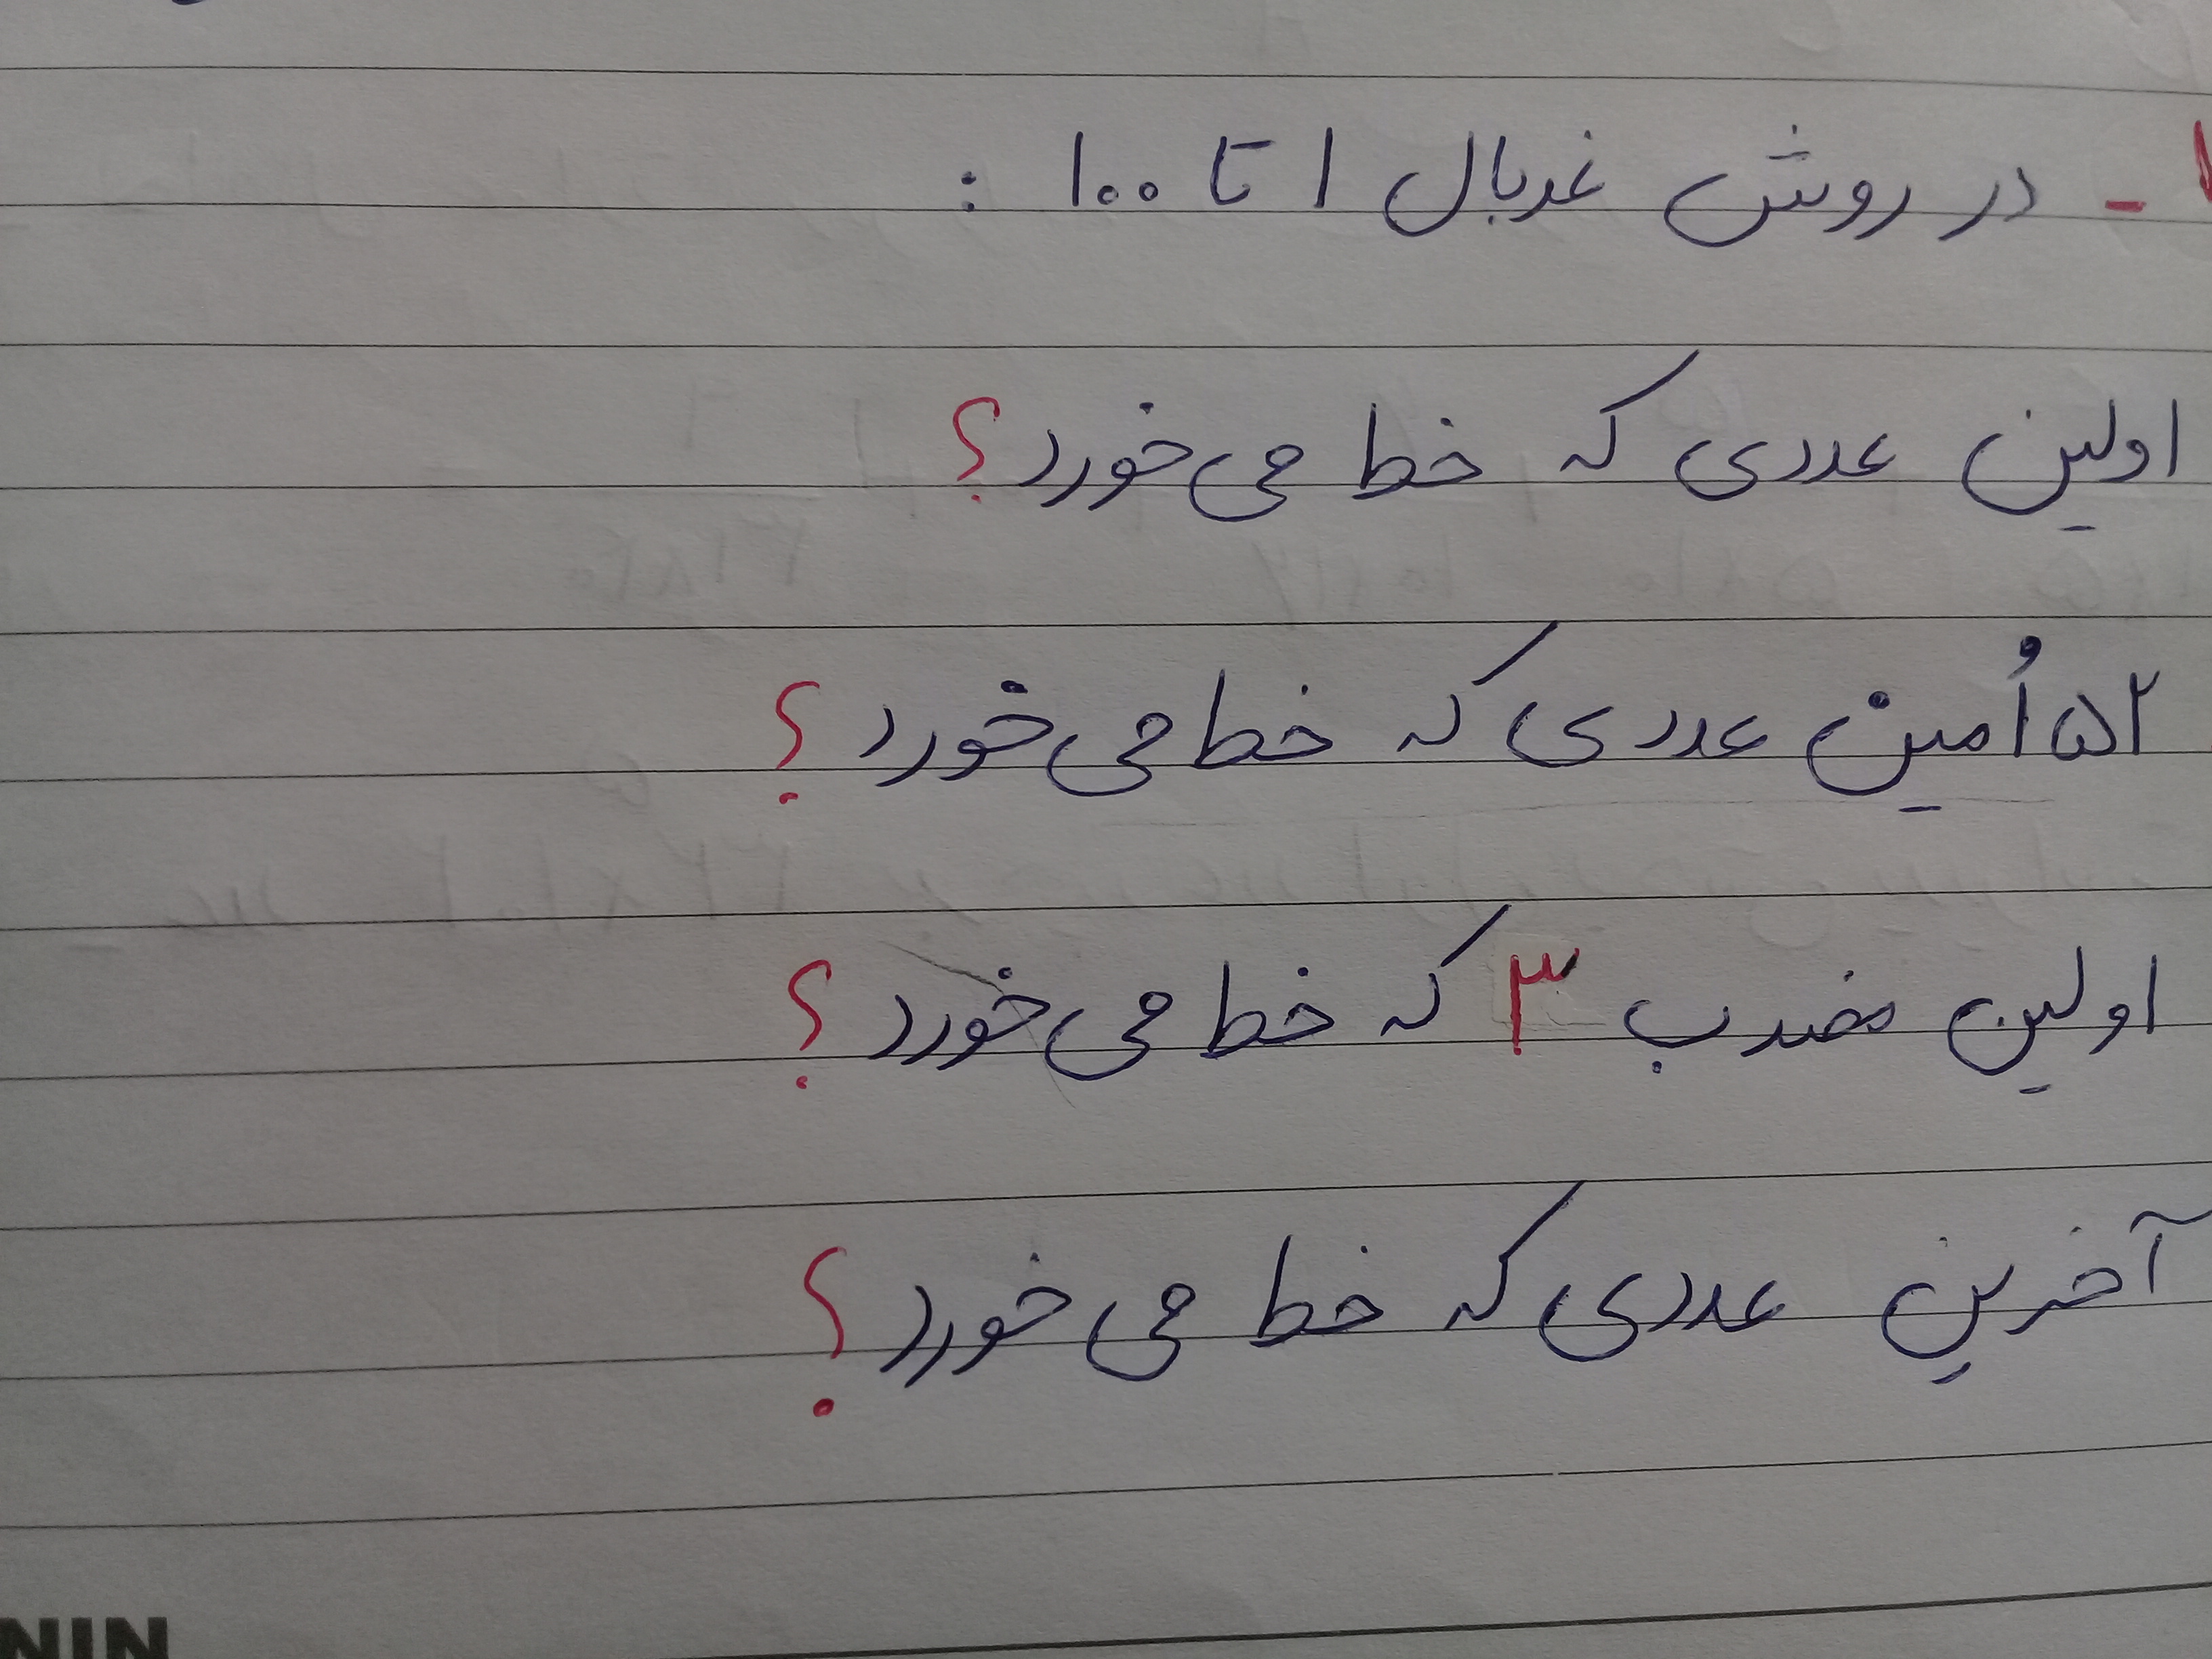 - در روش غربال ۱ تا ۱۰۰ :
اولین عددی که خط می‌خورد؟
۵۲ اُمین عددی که خط می‌خورد؟
اولین مضرب ۳ که خط می‌خورد؟
آخرین عددی که خط می‌خورد؟
NIN